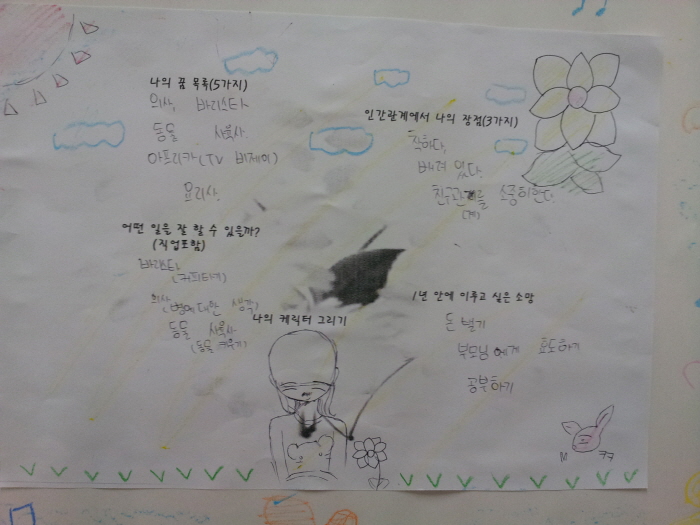 나의 꿈 목록(5가지)
의사, 바리스타
동물 사육사
아프리카(TV 비제이)
요리사.
인간관계에서 나의 장점(3가지)
착하다,
배려 있다.
친구관계를 소중히한다.
(계)
어떤 일을 잘 할 수 있을까?
(직업포함)
바리스타
(커피타기)
의사(병에 대한 생각)
동물 사육사
(동물 키우기)
나의 캐릭터 그리기
1년 안에 이루고 싶은 소망
돈 벌기
부모님에게 효도하기
공부하기